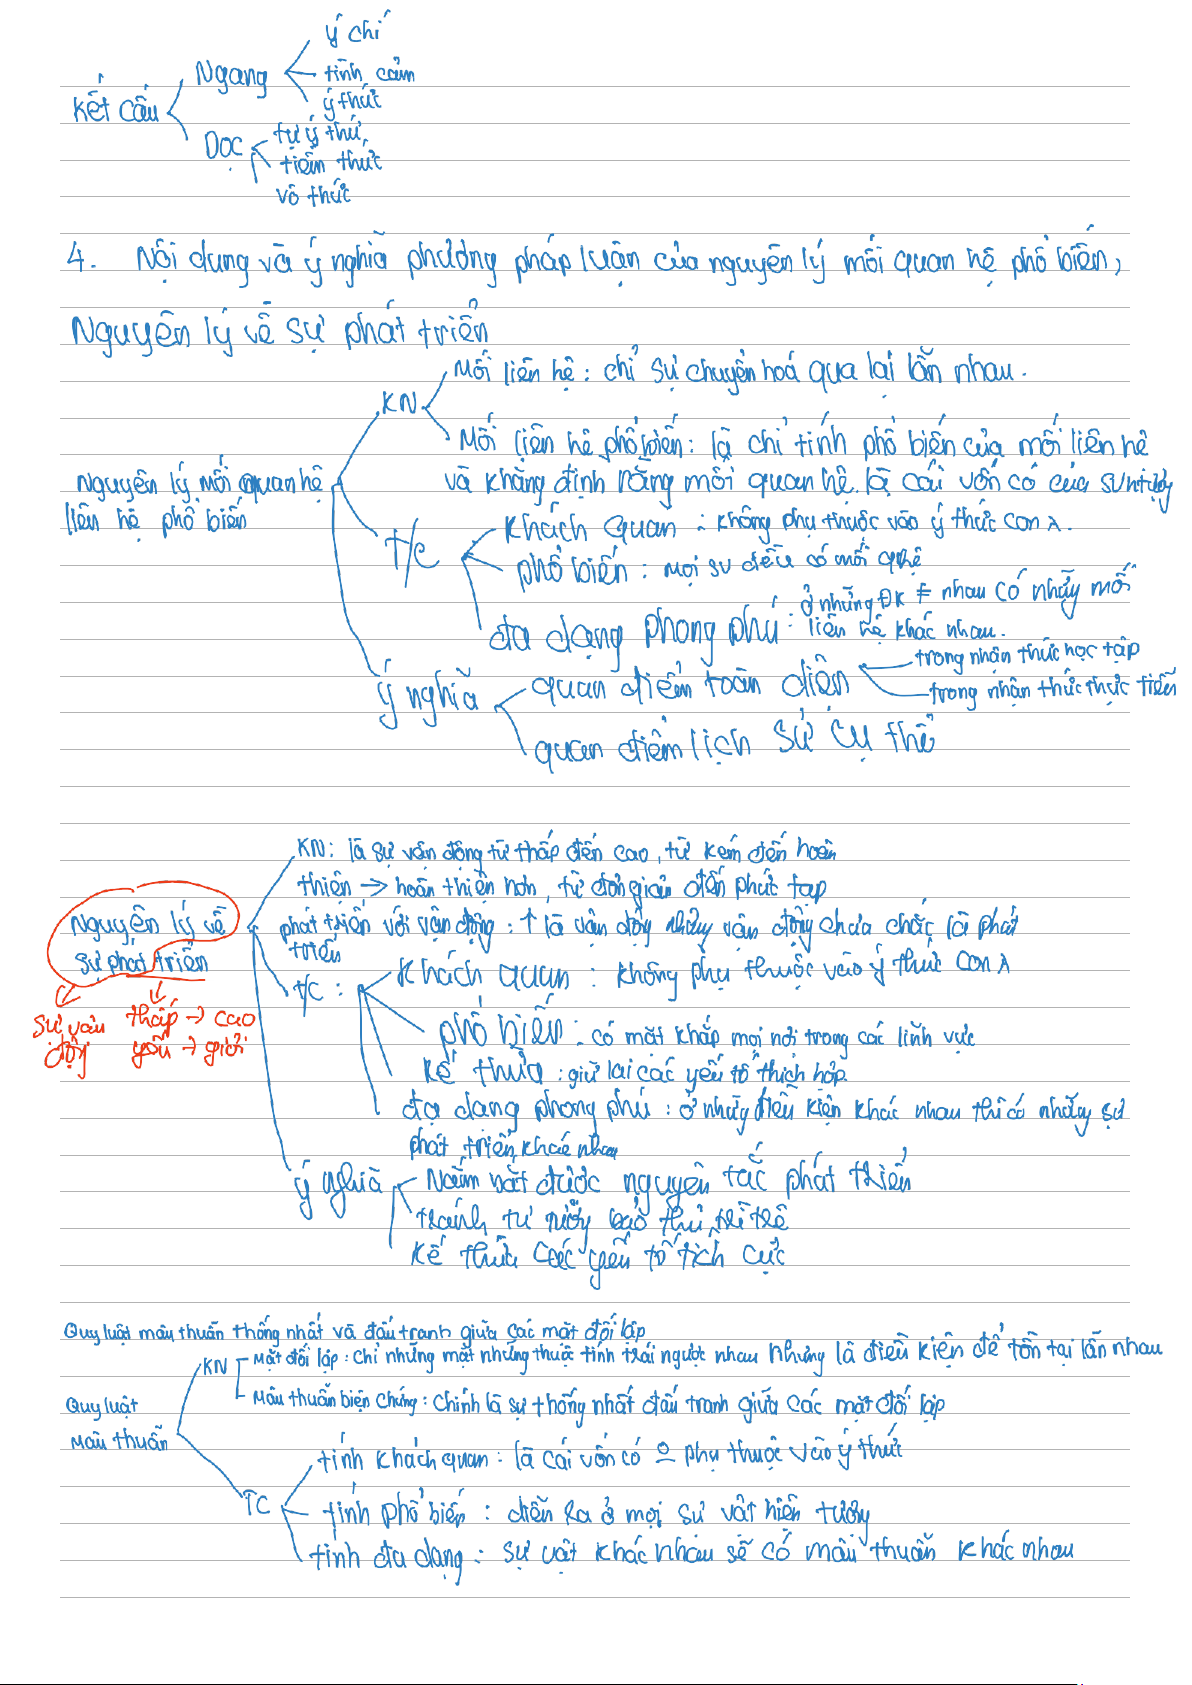 ý chí
Ngang
tình cảm
ý thức
Kết cấu
tự ý thứ
Dọc
tiềm thức
vô thức
4. Nội dung và ý nghĩa phương pháp luận của nguyên lý mối quan hệ phổ biến,
Nguyên lý về sự phát triển
Mối liên hệ : chỉ sự chuyển hoá qua lại lẫn nhau.
KN
Mối liên hệ phổ biến : là chỉ tính phổ biến của mối liên hệ
và khẳng định rằng mối quan hệ là cái vốn có của
Nguyên lý mối quan hệ
liên hệ phổ biến
khách quan : không phụ thuộc vào ý thức con
T/C
phổ biến : mọi sv đều có mối qhệ
đa dạng phong phú : ở những ĐK ≠ nhau có những mối
liên hệ khác nhau.
trong nhận thức học tập
ý nghĩa
quan điểm toàn diện
trong nhận thức thực tiễn
quan điểm lịch sử cụ thể
KN : là sự vận động từ thấp đến cao, từ kém đến hoàn
thiện → hoàn thiện hơn, từ đơn giản đến phức tạp
Nguyên lý về
sự phát triển
phát triển với vận động : ↑ là vận động nhưng vận động chưa chắc là phát
triển
T/C :
Khách quan : không phụ thuộc vào ý thức con
sự vận động
thấp → cao
yếu → giỏi
phổ biến : có mặt khắp mọi nơi trong các lĩnh vực
kế thừa : giữ lại các yếu tố thích hợp
đa dạng phong phú : ở những điều kiện khác nhau thì có những sự
phát triển khác nhau
ý nghĩa
Nắm vắt được nguyên tắc phát triển
tránh tư tưởng bảo thủ, trì trệ
kế thừa các yếu tố tích cực
Quy luật mâu thuẫn thống nhất và đấu tranh giữa các mặt đối lập
KN
Mặt đối lập : Chỉ những mặt những thuộc tính trái ngược nhau nhưng là điều kiện để tồn tại lẫn nhau
Mâu thuẫn biện chứng : Chính là sự thống nhất đấu tranh giữa các mặt đối lập
Quy luật
Mâu thuẫn
tính khách quan : là cái vốn có phụ thuộc vào ý thức
TC
tính phổ biến : diễn ra ở mọi sự vật hiện tượng
tính đa dạng : sự vật khác nhau sẽ có mâu thuẫn khác nhau